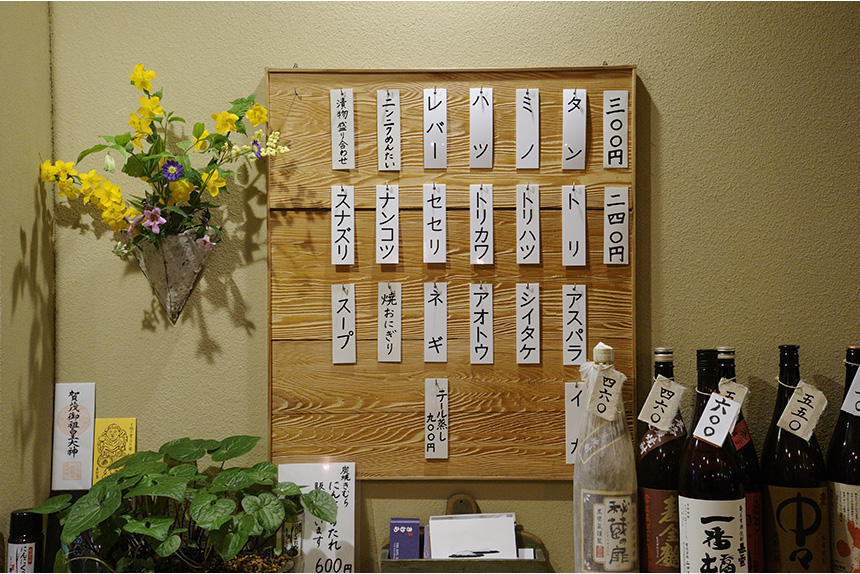 三〇〇円
タン
ミノ
ハツ
レバー
ニンニクめんたい
漬物盛り合わせ
二四〇円
トリ
トリハツ
トリカワ
セセリ
ナンコツ
スナズリ
アスパラ
シイタケ
アオトウ
ネギ
焼おにぎり
スープ
イカ
テール蒸し
九〇〇円
賀茂御祖皇大神
炭焼きむら
600円
四六〇
秘蔵の扉
四六〇
六〇〇
一番札
五五〇
中々